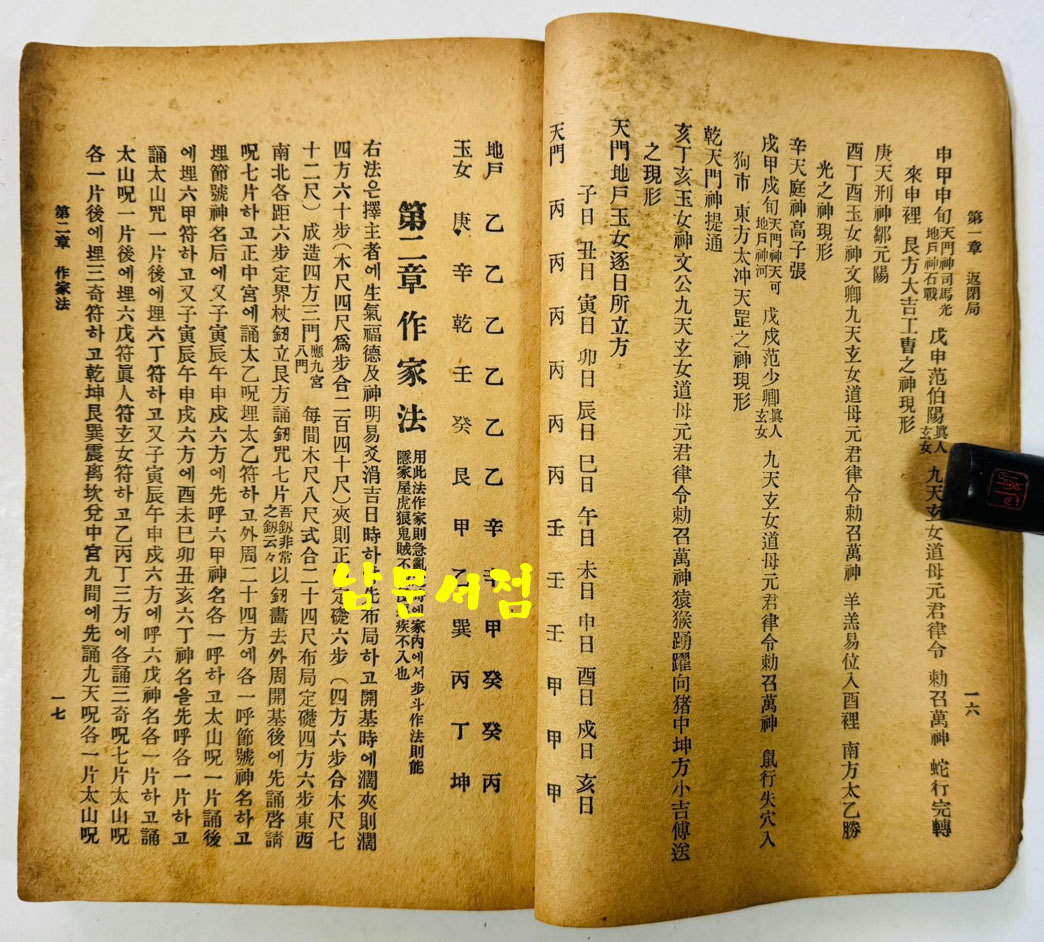 第一章 返閉局
一六
申甲申旬天門神司馬光地戶神石戰 戊申范伯陽眞人玄女 九天玄女道母元君律令 勅召萬神 蛇行完轉
來申裡 艮方大吉工曹之神現形
庚天刑神鄒元陽
酉丁酉玉女神文卿九天玄女道母元君律令勅召萬神 羊羔易位入酉裡 南方太乙勝
光之神現形
辛天庭神高子張
戌甲戌旬天門神天可地戶神河 戊戌范少卿眞人玄女 九天玄女道母元君律令勅召萬神 鼠行失穴入
狗市 東方太冲天罡之神現形
乾天門神提通
亥丁亥玉女神文公九天玄女道母元君律令勅召萬神猿猴踴躍向猪中坤方小吉傳送
之現形
天門地戶玉女逐日所立方
子日 丑日 寅日 卯日 辰日 巳日 午日 未日 申日 酉日 戌日 亥日
天門 丙 丙 丙 丙 丙 丙 壬 壬 壬 甲 甲 甲
地戶 乙 乙 乙 乙 乙 乙 辛 辛 甲 癸 癸 丙
玉女 庚 辛 乾 壬 癸 艮 甲 乙 巽 丙 丁 坤
第二章 作家法 用此法作家則急亂 家內에서步斗作法則能
隱家屋虎狼鬼賊不 疾不入也
右法은擇主者에生氣福德及神明易爻涓吉日時하 先布局하고開基時에濶夾則濶
四方六十步(木尺四尺爲步合二百四十尺)夾則正 定礎六步(四方六步合木尺七
十二尺)成造四方三門應九宮八門 每間木尺八尺式合二十四尺布局定礎四方六步東西
南北各距六步定界杖釼立艮方誦釼咒七片吾釼非常之釼云々以釼畵去外周開基後에先誦啓請
呪七片하고正中宮에誦太乙呪埋太乙符하고外周二十四方에各一呼節號神名하고
埋節號神名后에又子寅辰午申戌六方에先呼六甲神名各一呼하고太山呪一片誦後
에埋六甲符하고又子寅辰午申戌六方에酉未巳卯丑亥六丁神名을先呼各一片하고
誦太山咒一片後에埋六丁符하고又子寅辰午申戌六方에呼六戊神名各一片하고誦
太山呪一片後에埋六戊符眞人符玄女符하고乙丙丁三方에各誦三奇呪七片太山呪
各一片後에埋三奇符하고乾坤艮巽震离坎兌中宮九間에先誦九天呪各一片太山呪
第二章 作家法
一七
남문서점